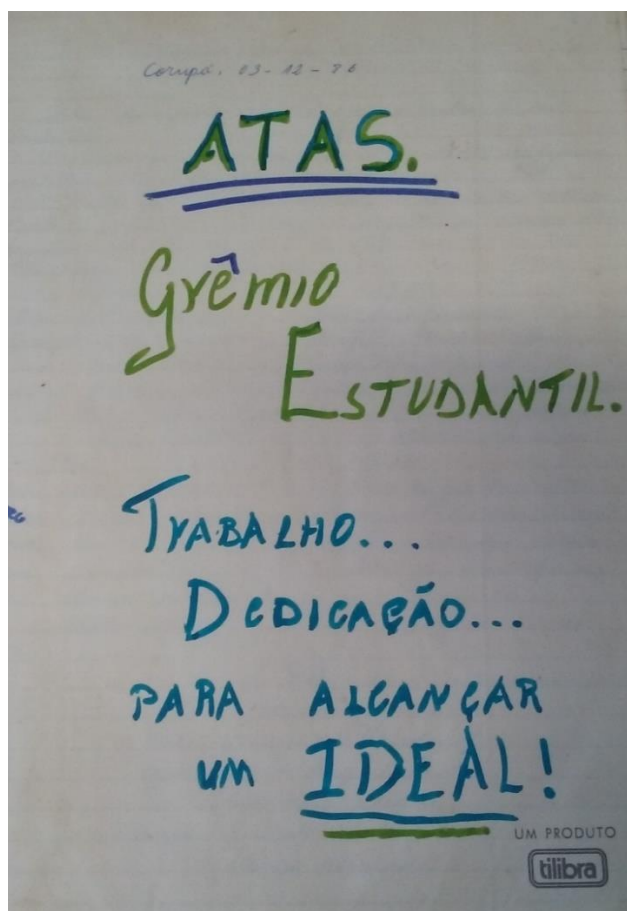 Corupá, 03-12-86
ATAS.
Grêmio
ESTUDANTIL.
TRABALHO...
DEDICAÇÃO...
PARA ALCANÇAR
UM IDEAL!
UM PRODUTO
tilibra